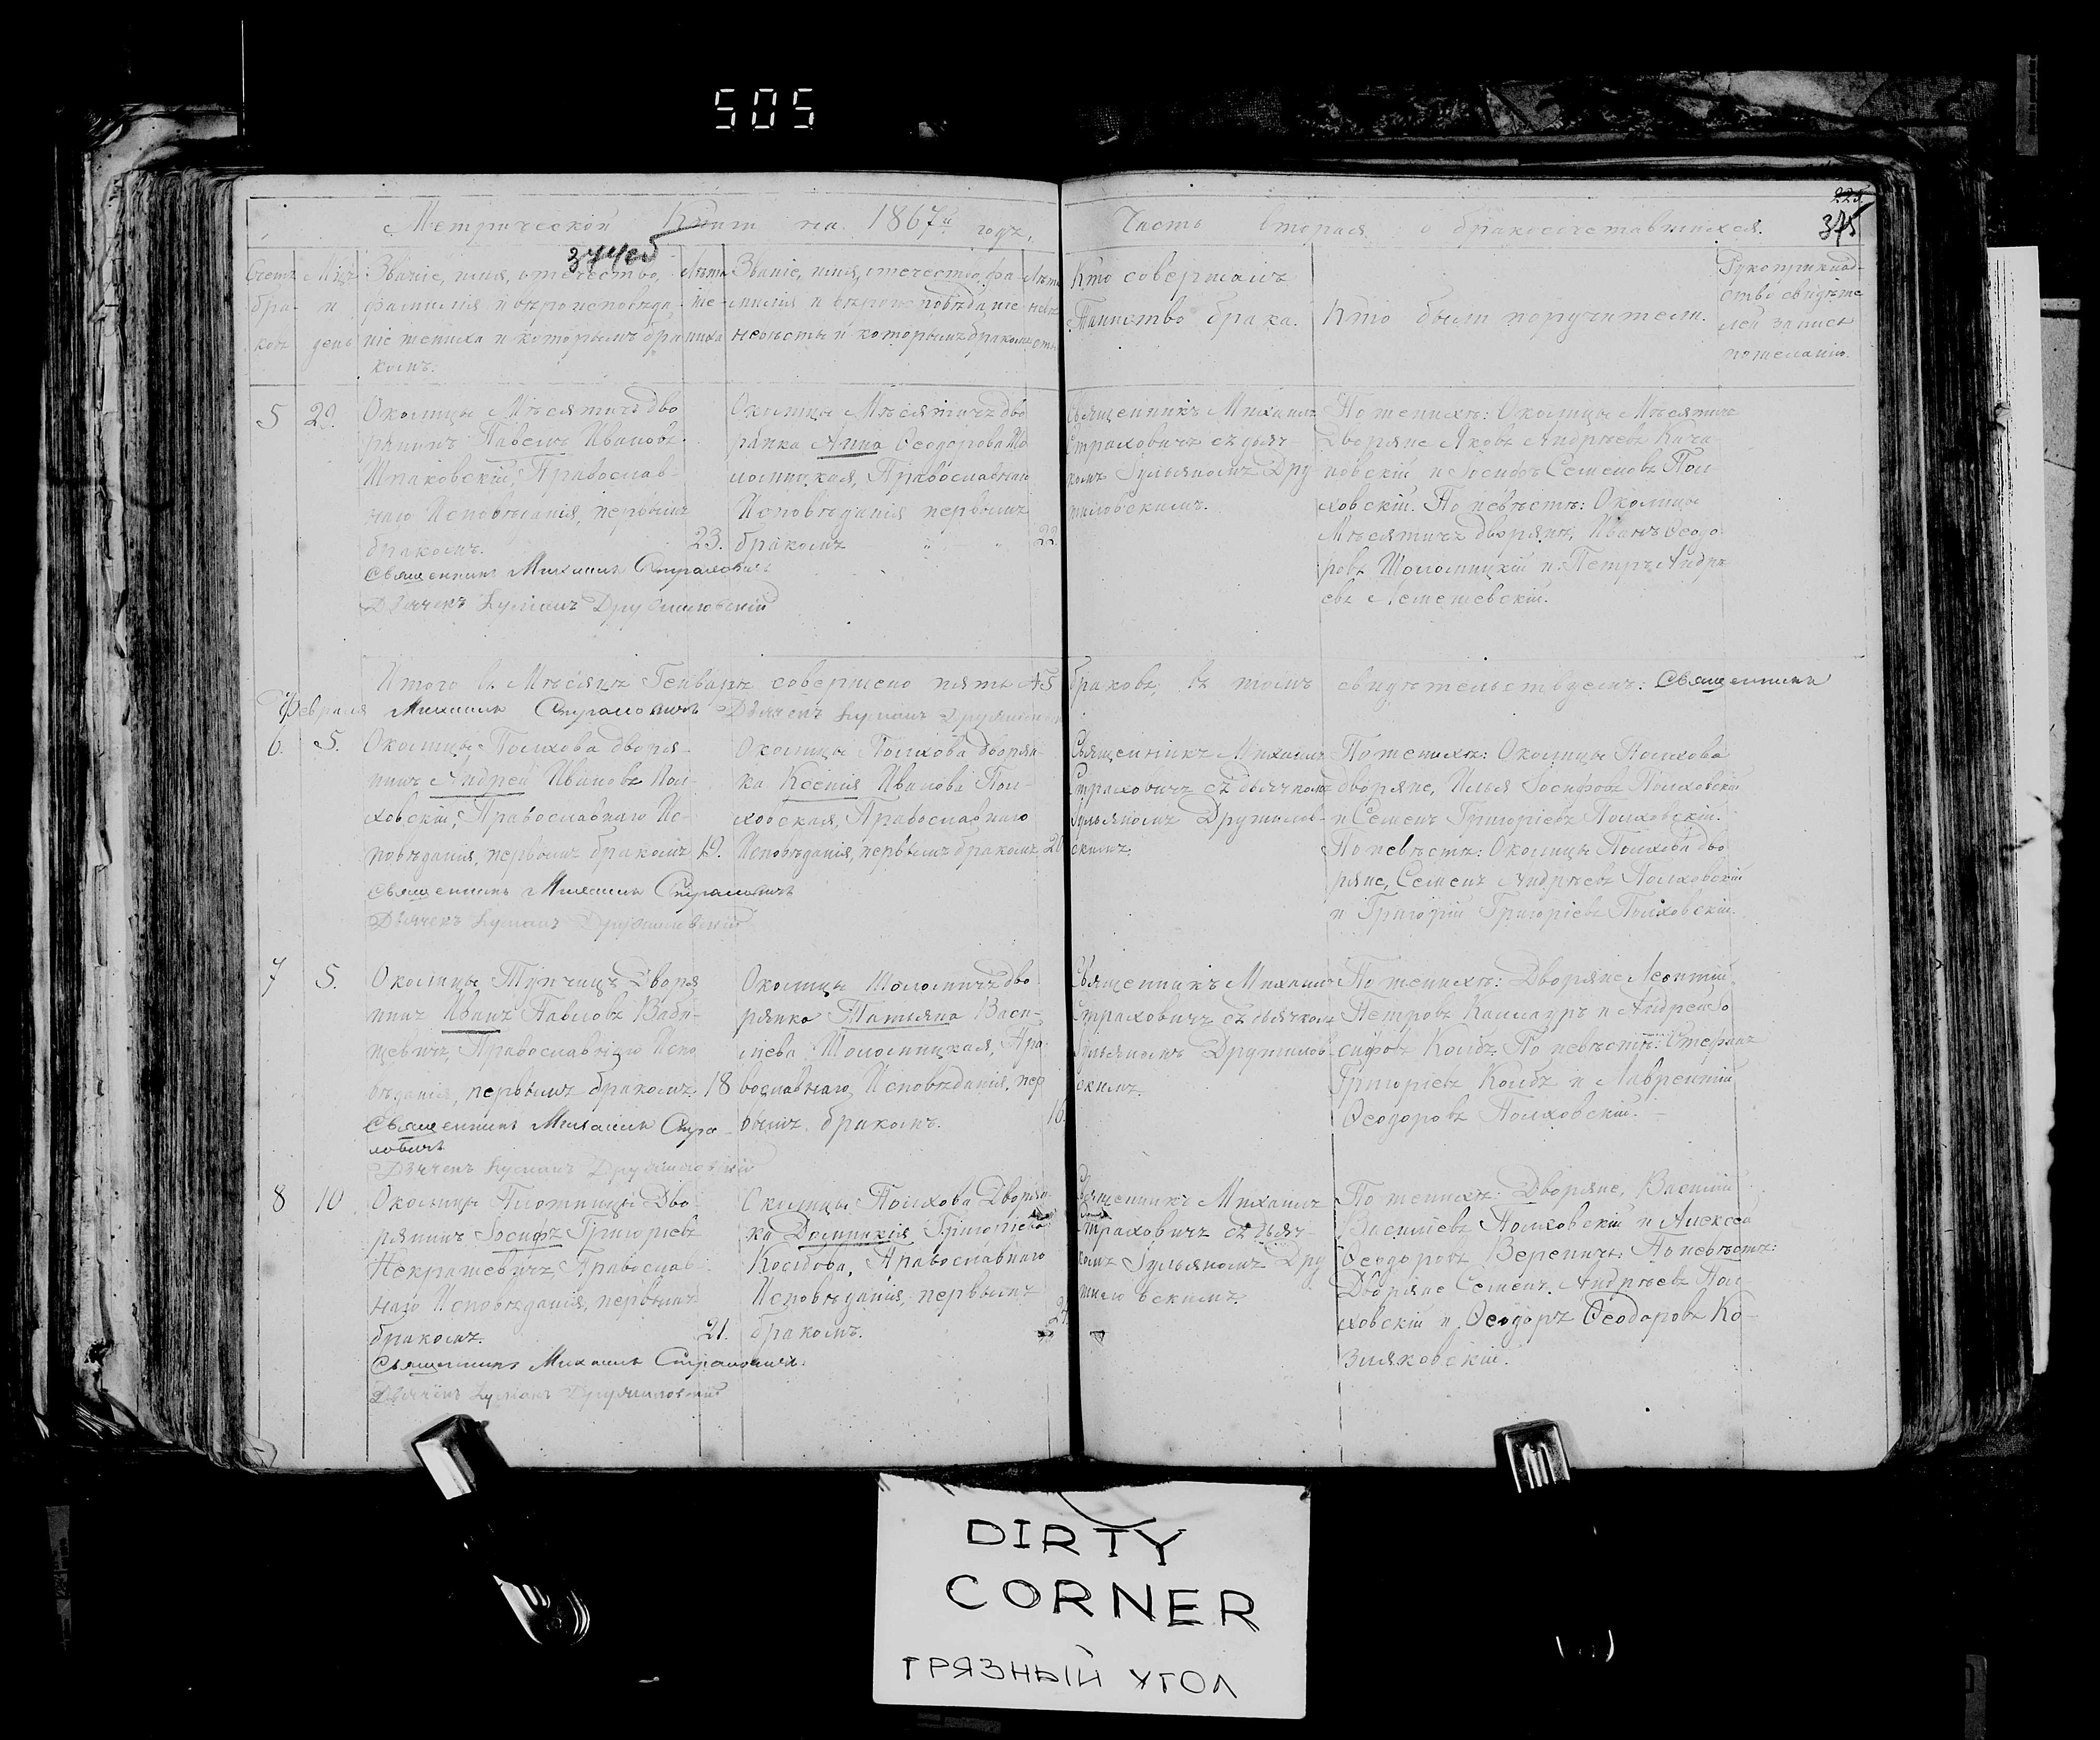 505
225
375
Метрической Книги на 1867й годъ,
Часть вторая о бракосочетавшихся.
344об
Счетъ бра-ковъ
Мцъ и день
Званіе, имя, отечество,
фамилія и вѣроисповѣда-
ніе жениха и которымъ бра-
комъ.
Лѣта же-ниха
Званіе, имя, отечество, фа-
милія и вѣроисповѣданіе
невѣсты и которымъ бракомъ
Лѣта невѣ-сты
Кто совершалъ
Таинство брака.
Кто были поручители.
Рукоприклад-
ство свидѣте
лей записи
по желанію.
5
29.
Околицы Мѣсятичъ дво
рянинъ Павелъ Ивановъ
Шпаковскій, Православ-
наго Исповѣданія, первымъ
бракомъ.
23.
Священникъ Михаилъ Страховичъ
Дьячекъ Іуліанъ Дружиловскій
Околицы Мѣсятичъ дво
рянка Анна Ѳеодорова Шо
ломицкая, Православнаго
Исповѣданія первымъ
бракомъ
22.
Священникъ Михаилъ
Страховичъ съ дьяч-
комъ Іульяномъ Дру
жиловскимъ.
По женихѣ: Околицы Мѣсятичъ
Дворяне Яковъ Андрѣевъ Кача
новскій и Іосифъ Семеновъ Пол
ховскій. По невѣстѣ: Околицы
Мѣсятичъ дворяне, Иванъ Ѳеодо
ровъ Шоломицкій и Петръ Андрѣ
евъ Лемешевскій.
Итого въ Мѣсяцѣ Генварѣ совершено пять №5 браковъ, въ томъ свидѣтельствуемъ: Священникъ
Февраля Михаилъ Страховичъ Дьячекъ Іуліанъ
6.
5.
Околицы Полхова дворя-
нинъ Андрей Ивановъ Пол-
ховскій, Православнаго Ис-
повѣданія, первымъ бракомъ
19.
Священникъ Михаилъ Страховичъ
Дьячекъ Іуліанъ Дружиловскій
Околицы Полхова дворян-
ка Ксенія Иванова Пол-
ховская, Православнаго
Исповѣданія, первымъ бракомъ
20
Священникъ Михаилъ
Страховичъ съ дьячкомъ
Іульяномъ Дружилов-
скимъ.
По женихѣ: Околицы Полхова
дворяне, Илья Іосифовъ Полховскій
и Семенъ Григоріевъ Полховскій.
По невѣстѣ: Околицы Полхова дво
ряне, Семенъ Андрѣевъ Полховскій
и Григорій Григоріевъ Полховскій.
7
5.
Околицы Тупчицъ Дворя
нинъ Иванъ Павловъ Ваби-
щевичъ, Православнаго Испо
вѣданія, первымъ бракомъ.
18
Священникъ Михаилъ Стра-
ховичъ
Дьячекъ Іуліанъ Дружиловскій
Околицы Шоломичъ дво
рянка Татіяна Васи-
ліева Шоломицкая, Пра-
вославнаго Исповѣданія, пер
вымъ бракомъ.
16.
Священникъ Михаилъ
Страховичъ съ дьячкомъ
Іульяномъ Дружилов-
скимъ.
По женихѣ: Дворяне Леонтій
Петровъ Каллауръ и Андрей Іо
сифовъ Колбъ. По невѣстѣ: Стефанъ
Григоріевъ Колбъ и Лаврентій
Ѳеодоровъ Полховскій.
8
10
Околицы Плотницы Дво-
рянинъ Іосифъ Григоріевъ
Некрашевичъ, Православ-
наго Исповѣданія, первымъ
бракомъ.
21.
Священникъ Михаилъ Страховичъ.
Дьячекъ Іуліанъ Дружиловскій
Околицы Полхова Дворян-
ка Домникія Григоріева
Колбова, Православнаго
Исповѣданія, первымъ
бракомъ.
Священникъ Михаилъ
Страховичъ съ дьяч-
комъ Іульяномъ Дру
жиловскимъ.
По женихѣ: Дворяне, Василій
Василіевъ Полховскій и Алексѣй
Ѳеодоровъ Вереничъ: По невѣстѣ:
Дворяне Семенъ Андрѣевъ Пол
ховскій и Ѳеодоръ Ѳеодоровъ Ко-
зляковскій.
DIRTY
CORNER
ГРЯЗНЫЙ УГОЛ